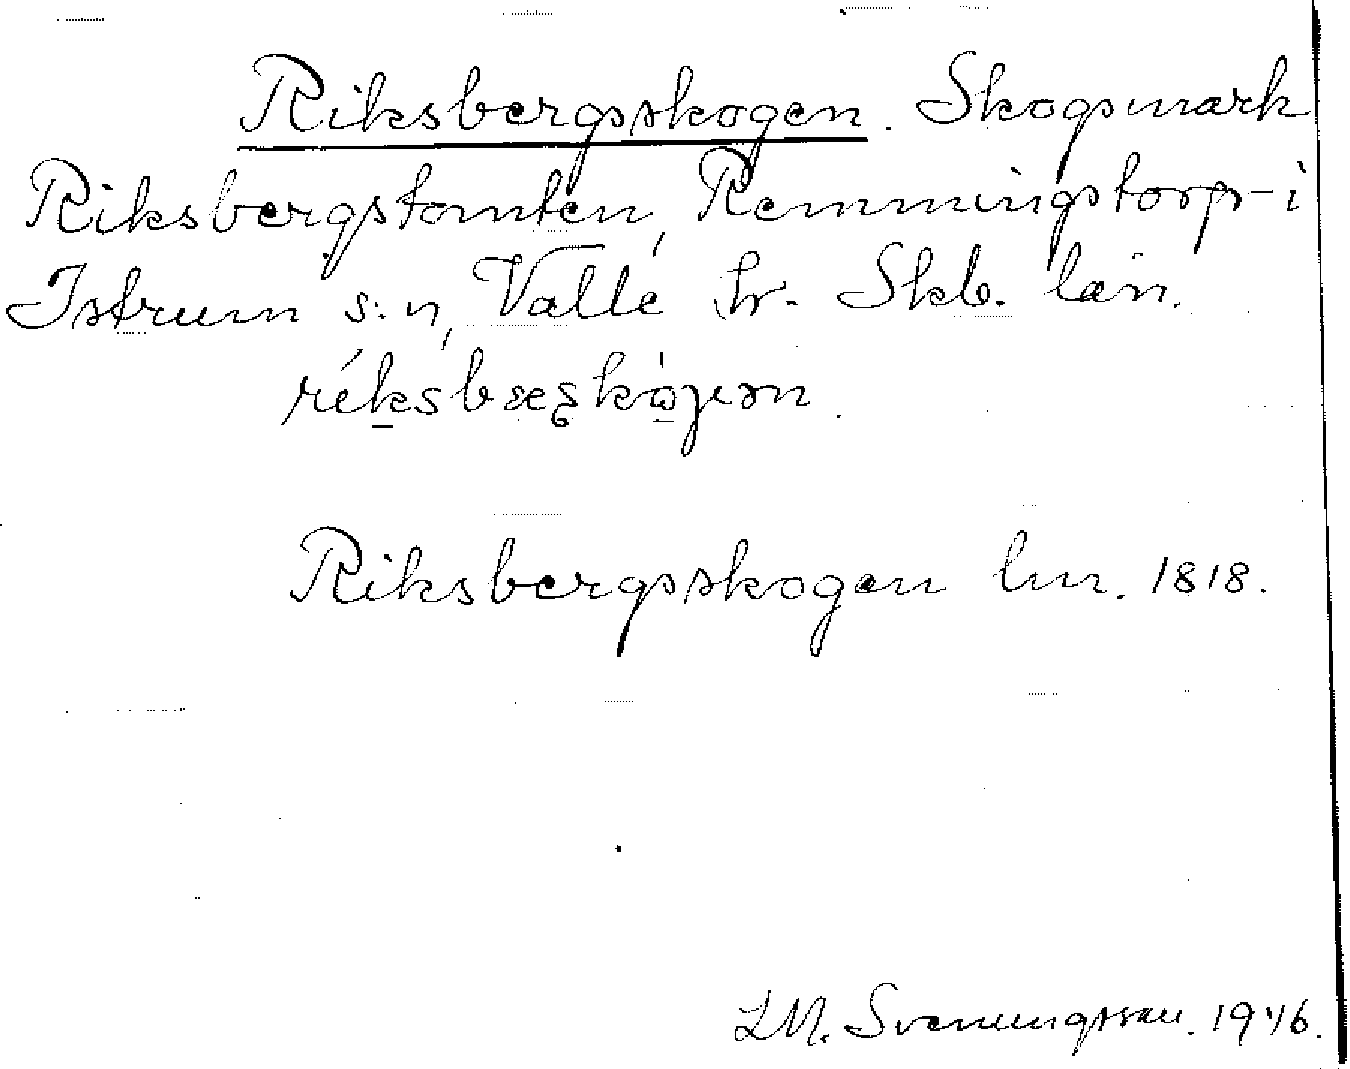 Riksbergsskogen. Skogsmark
Riksbergstomten, Remmingstorp i
Istrum s:n, Valle hr. Skb. län.
Riksbergsskogen lm. 1818.
LM. Svenungsson. 1946.